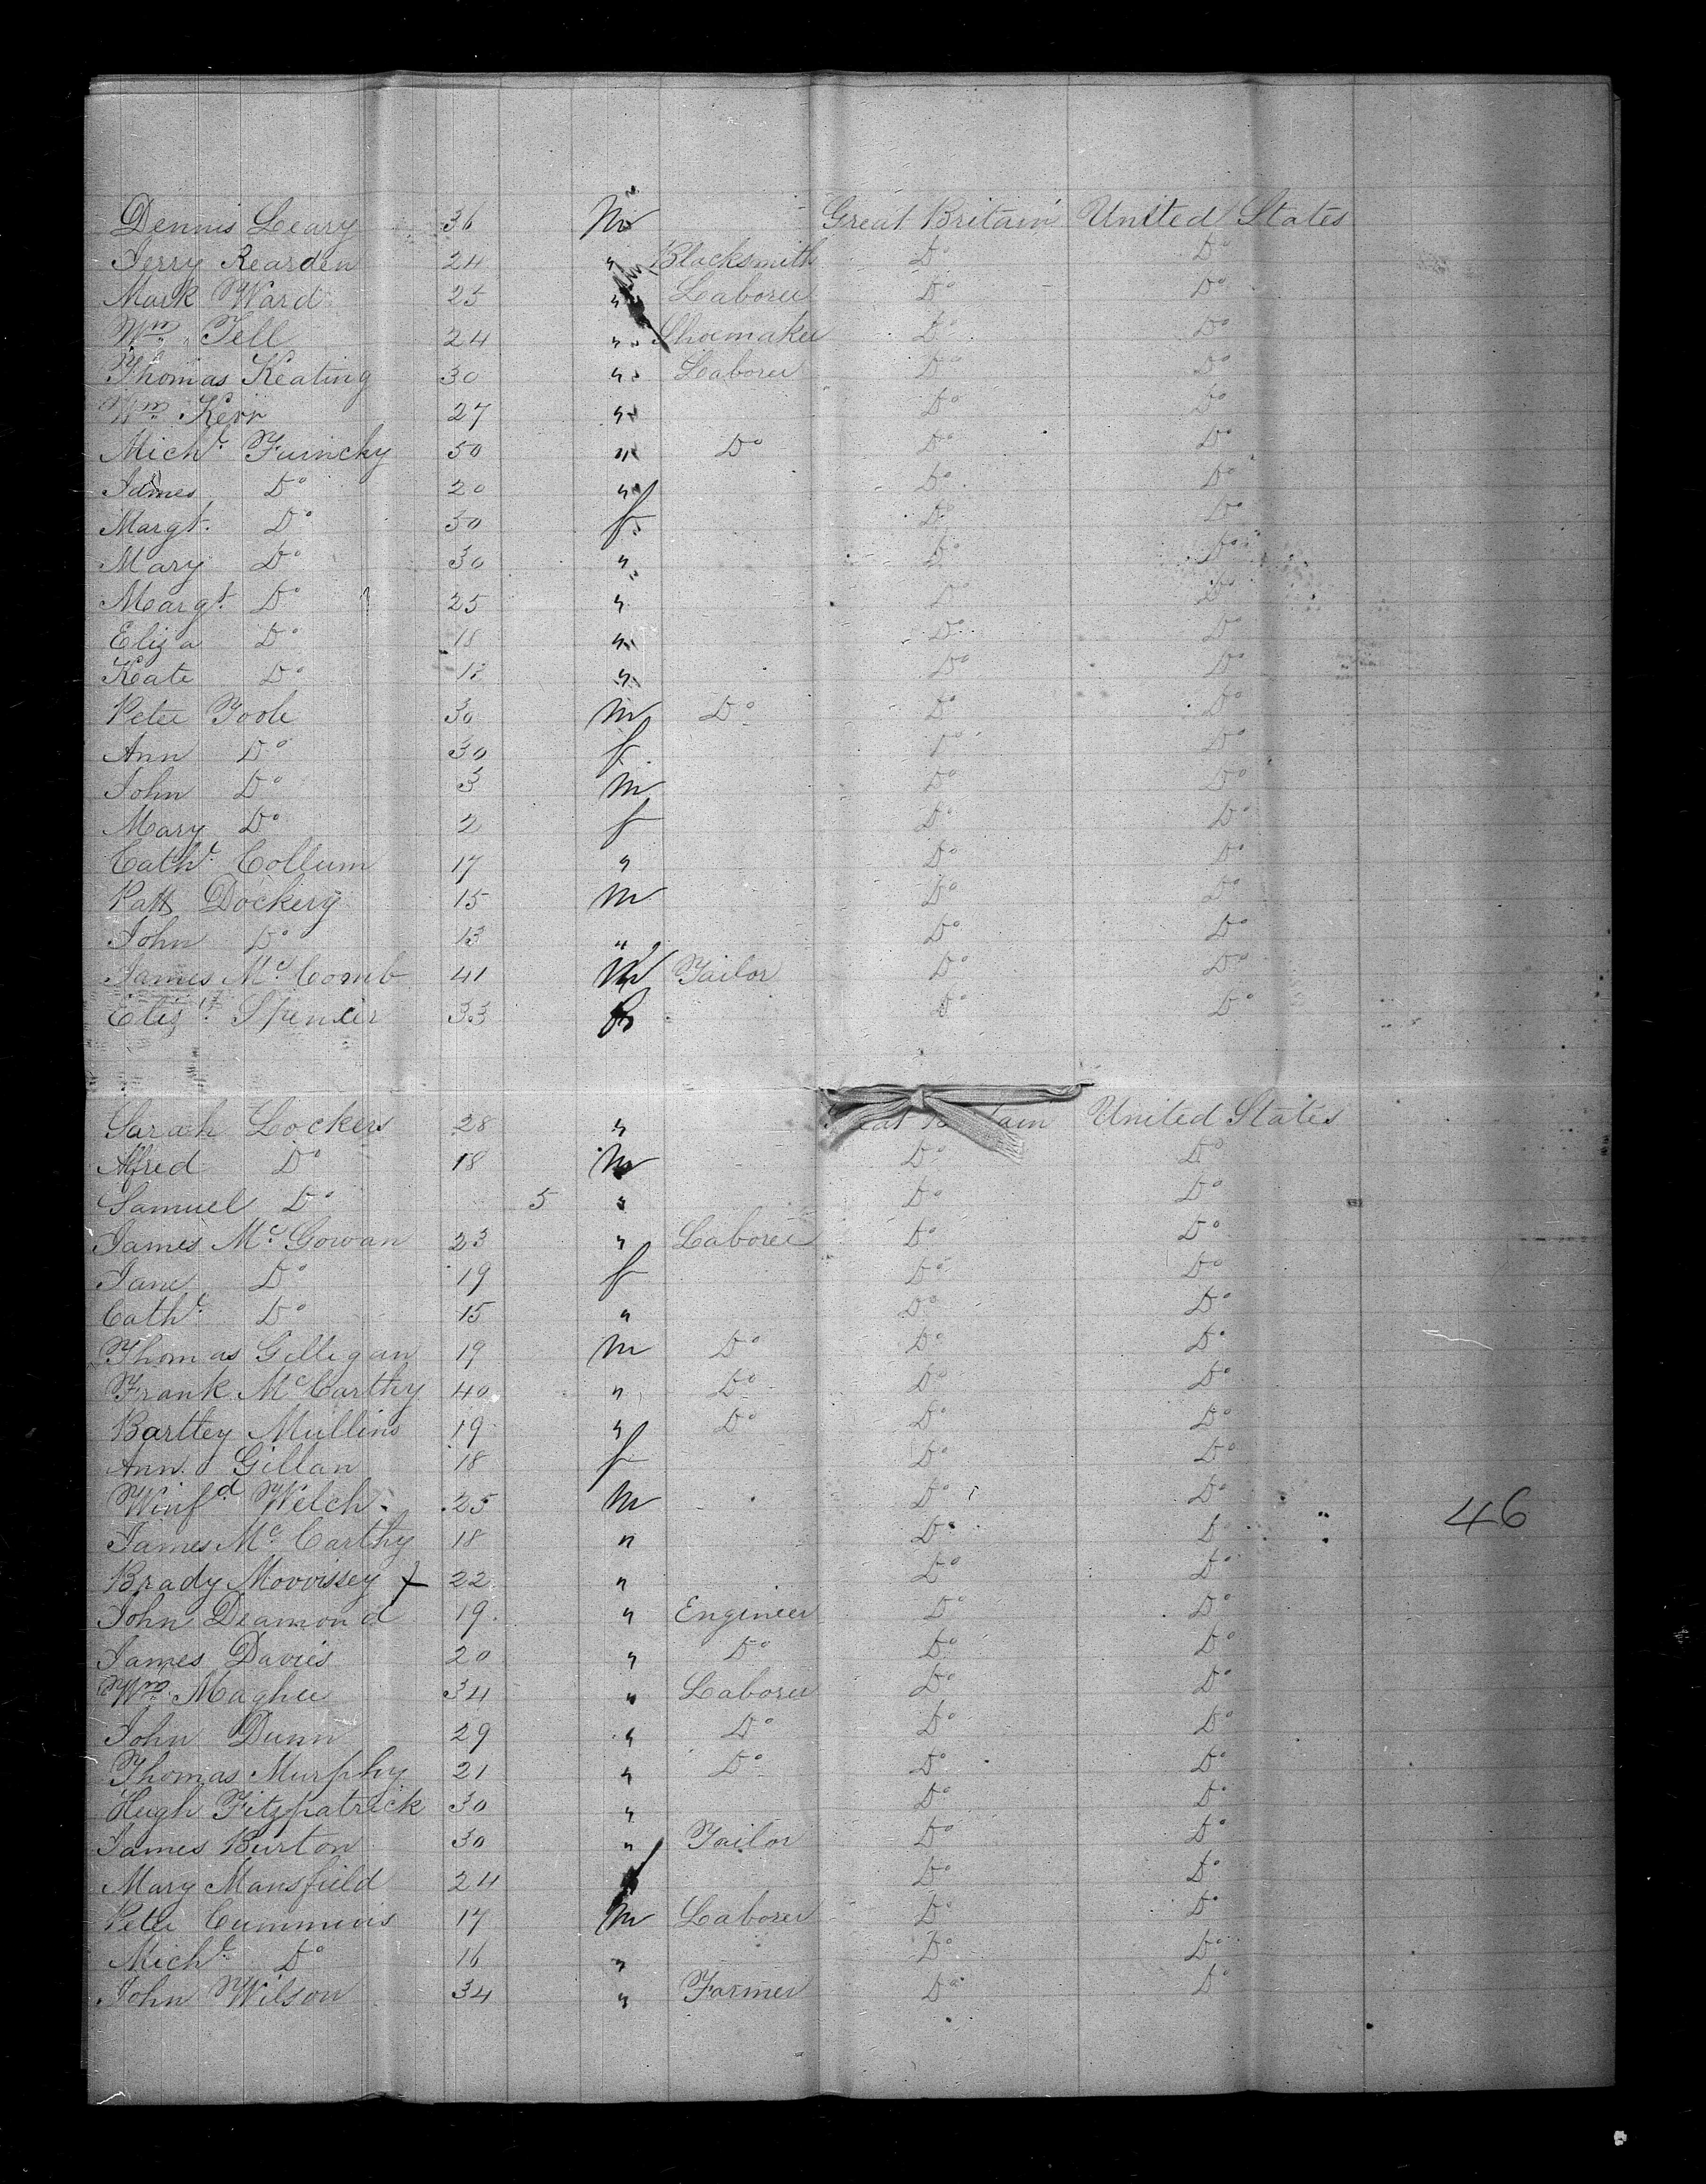 Dennis Leary 36 M Great Britain United States
Jerry Rearden 24 " Blacksmith Do Do
Mark Ward 25 " Laborer Do Do
Wm Tell 24 " Shoemaker Do Do
Thomas Keating 30 " Laborer Do Do
Wm Kerr 27 " Do Do
Michl 50 " Do Do Do
James Do 20 " Do Do
Margt. Do 50 f Do Do
Mary Do 30 " Do Do
Margt. Do 25 " Do Do
Eliza Do 18 " Do Do
Kate Do " Do Do
Peter Toole 30 M Do Do Do
Ann Do 30 f Do Do
John Do 3 M Do Do
Mary Do 2 f Do Do
Cathe Collum 17 " Do Do
Patk Dockery 15 M Do Do
John Do 13 " Do Do
James Mc Comb 41 M Tailor Do Do
Elizth Spencer 33 f Do Do
Sarah Lockers 28 " Great Britain United States
Alfred Do 18 M Do Do
Samuel Do 5 " Do Do
James Mc Gowan 23 " Laborer Do Do
Jane Do 19 f Do Do
Cathe Do 15 " Do Do
Thomas Gilligan 19 M Do Do Do
Frank Mc Carthy 40 " Do Do Do
Bartley Mullins 19 " Do Do Do
Ann Gillan 18 f Do Do
Winfd Welch 25 M Do Do 46
James Mc Carthy 18 " Do Do
Brady Morrissey 22 " Do Do
John Deamond 19 " Engineer Do Do
James Davies 20 " Do Do Do
Wm Magher 34 " Laborer Do Do
John Dunn 29 " Do Do Do
Thomas Murphy 21 " Do Do Do
Hugh Fitzpatrick 30 " Do Do
James Burton 30 " Tailor Do Do
Mary Mansfield 24 Do Do
Peter Cummins 17 M Laborer Do Do
Michl Do 16 " Do Do
John Wilson 34 " Farmer Do Do